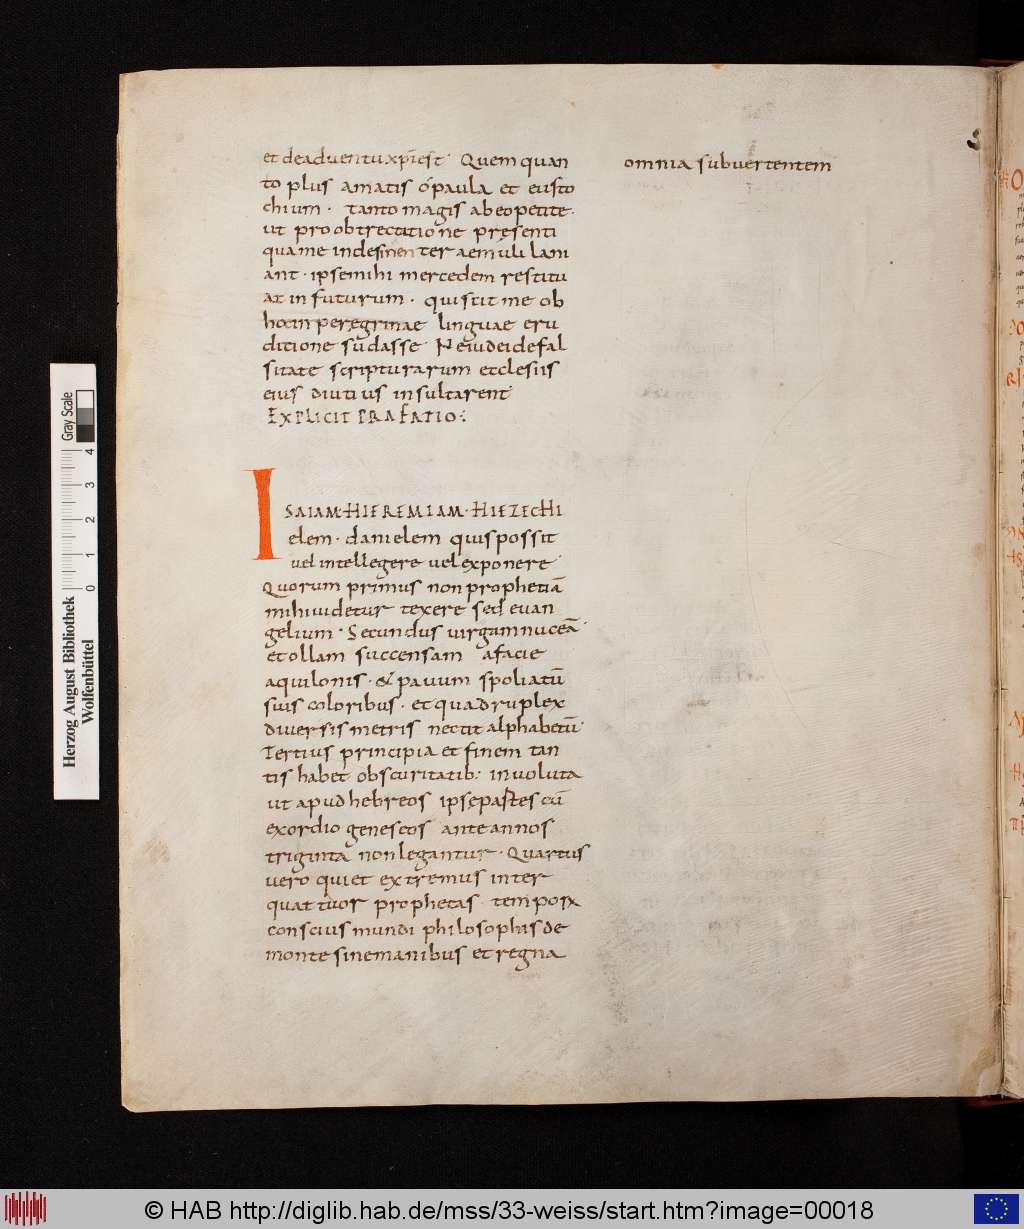 et de aduentu xp̄i est · Quem quan
to plus amatis o paula et eusto
chium · tanto magis ab eo petite ·
ut pro obtrectatione presenti
qua me indesinenter aemuli lani
ant · ipse mihi mercedem restitu
at in futurum · qui scit me ob
hoc in peregrinae linguae eru
ditione sudasse Ne iudei de fal
sitate scripturarum ecclesiis
eius diutius insultarent
EXPLICIT PRAEFATIO :
ISAIAM · HIEREMIAM · HIEZECHI
elem · danielem quis possit
uel intellegere uel exponere
Quorum primus non prophetiā
mihi uidetur texere sed euan
gelium · Secundus uirgam nuceā ·
et ollam succensam a facie
aquilonis · & pauum spoliatū
suis coloribus · et quadruplex
diuersis metris nectit alphabetū ·
Tertius principia et finem tan
tis habet obscuritatib; inuoluta
ut apud hebreos ipse partes cū
exordio geneseos ante annos
triginta non legantur · Quartus
uero qui et extremus inter
quattuor prophetas · temporū
conscius mundi philosophis de
monte sine manibus et regna
omnia subuertentem
Gray Scale
0 1 2 3 4
Herzog August Bibliothek
Wolfenbüttel
© HAB http://diglib.hab.de/mss/33-weiss/start.htm?image=00018